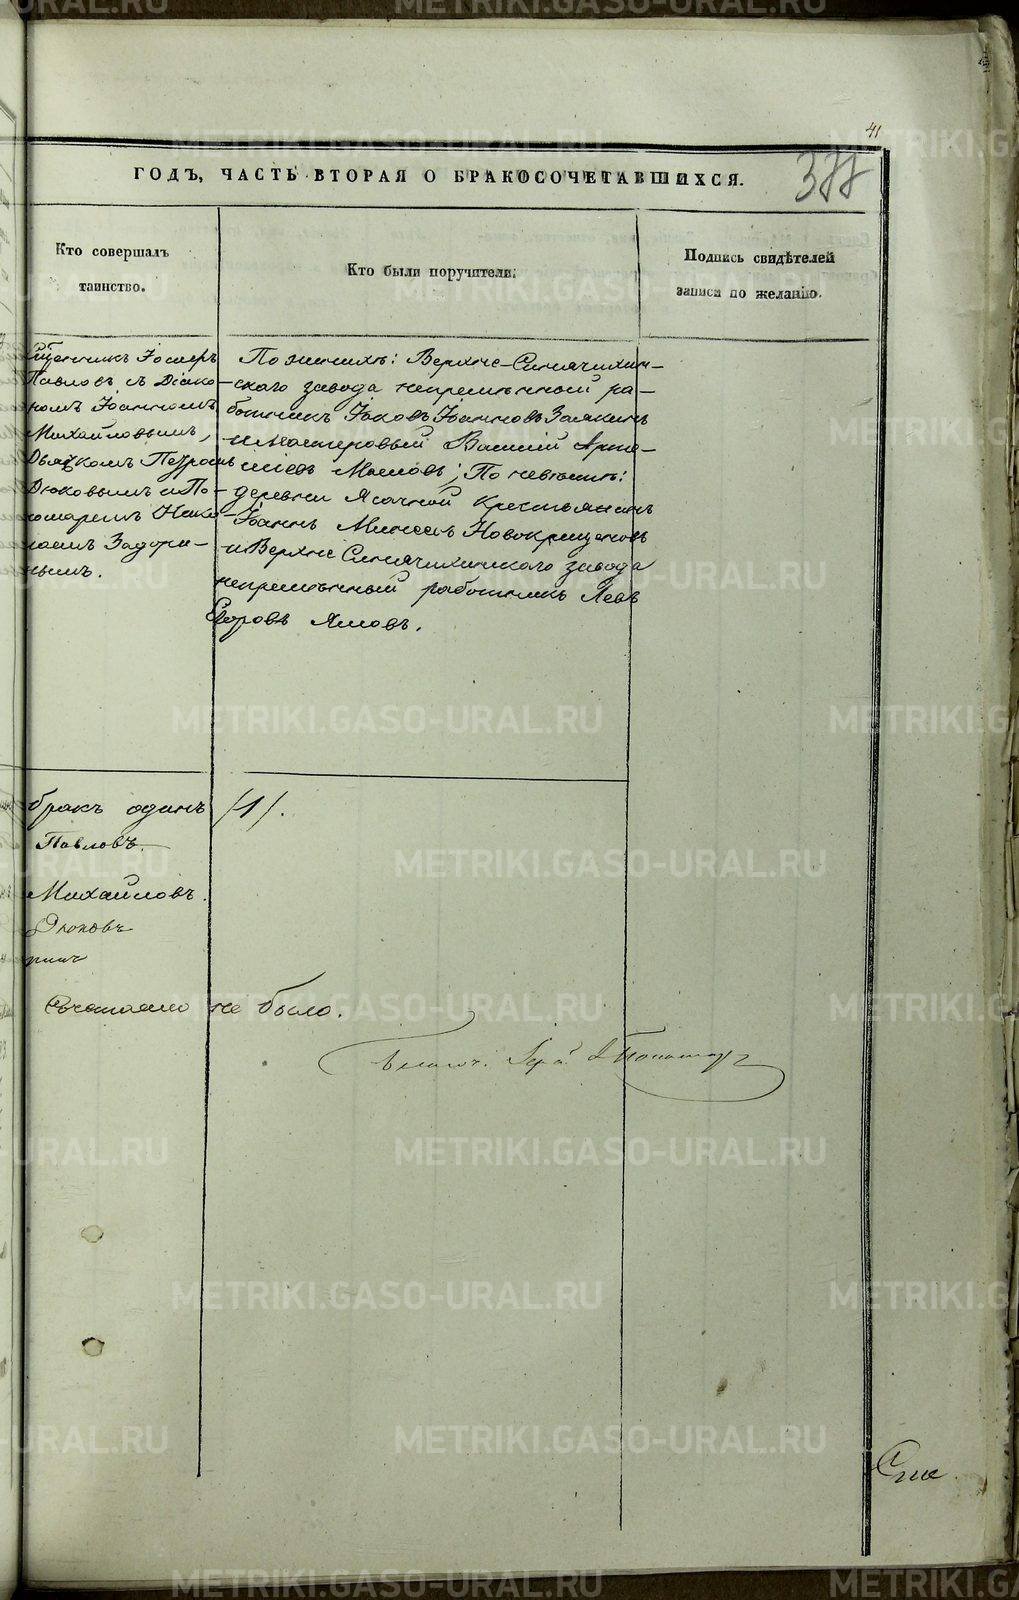 41
377
ГОДЪ, ЧАСТЬ ВТОРАЯ О БРАКОСОЧЕТАВШИХСЯ.
Кто совершалъ
таинство.
Кто были поручители.
Подпись свидѣтелей
записи по желанію.
Павловъ съ Діако-
номъ Іоанномъ
Михайловымъ,
Дьячкомъ Петромъ
Дюковымъ и По-
номаремъ Нико-
лаемъ Задори-
нымъ.
По женихѣ: Верхне-Синячихин-
скаго завода непремѣнный ра-
ботникъ Іаковъ Іоанновъ Заякинъ
и мастеровый Василій Арте-
міевъ Масловъ; По невѣстѣ:
деревни Ясачной крестьянинъ
Іоаннъ Новокрещеновъ
и Верхне Синячихинскаго завода
непремѣнный работникъ Левъ
Егоровъ Ямовъ.
бракъ одинъ /1/.
Павловъ.
Михайловъ.
Дюковъ
не было.
METRIKI.GASO-URAL.RU